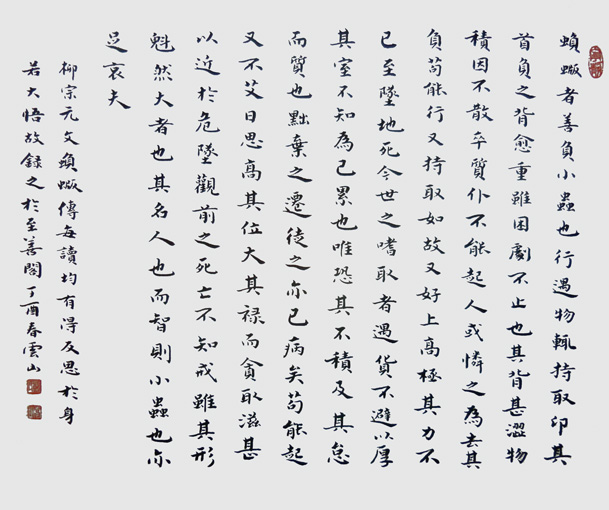 蝜蝂者善負小蟲也行遇物輒持取卬其
首負之背愈重雖困劇不止也其背甚澀物
積因不散卒質仆不能起人或憐之為去其
負苟能行又持取如故又好上高極其力不
已至墜地死今世之嗜取者遇貨不避以厚
其室不知為己累也唯恐其不積及其怠
而質也黜棄之遷徙之亦已病矣苟能起
又不艾日思高其位大其祿而貪取滋甚
以近於危墜觀前之死亡不知戒雖其形
魁然大者也其名人也而智則小蟲也亦
足哀夫
柳宗元文蝜蝂傳每讀均有得反思於身
若大悟故録之於至善閣丁酉春雲山